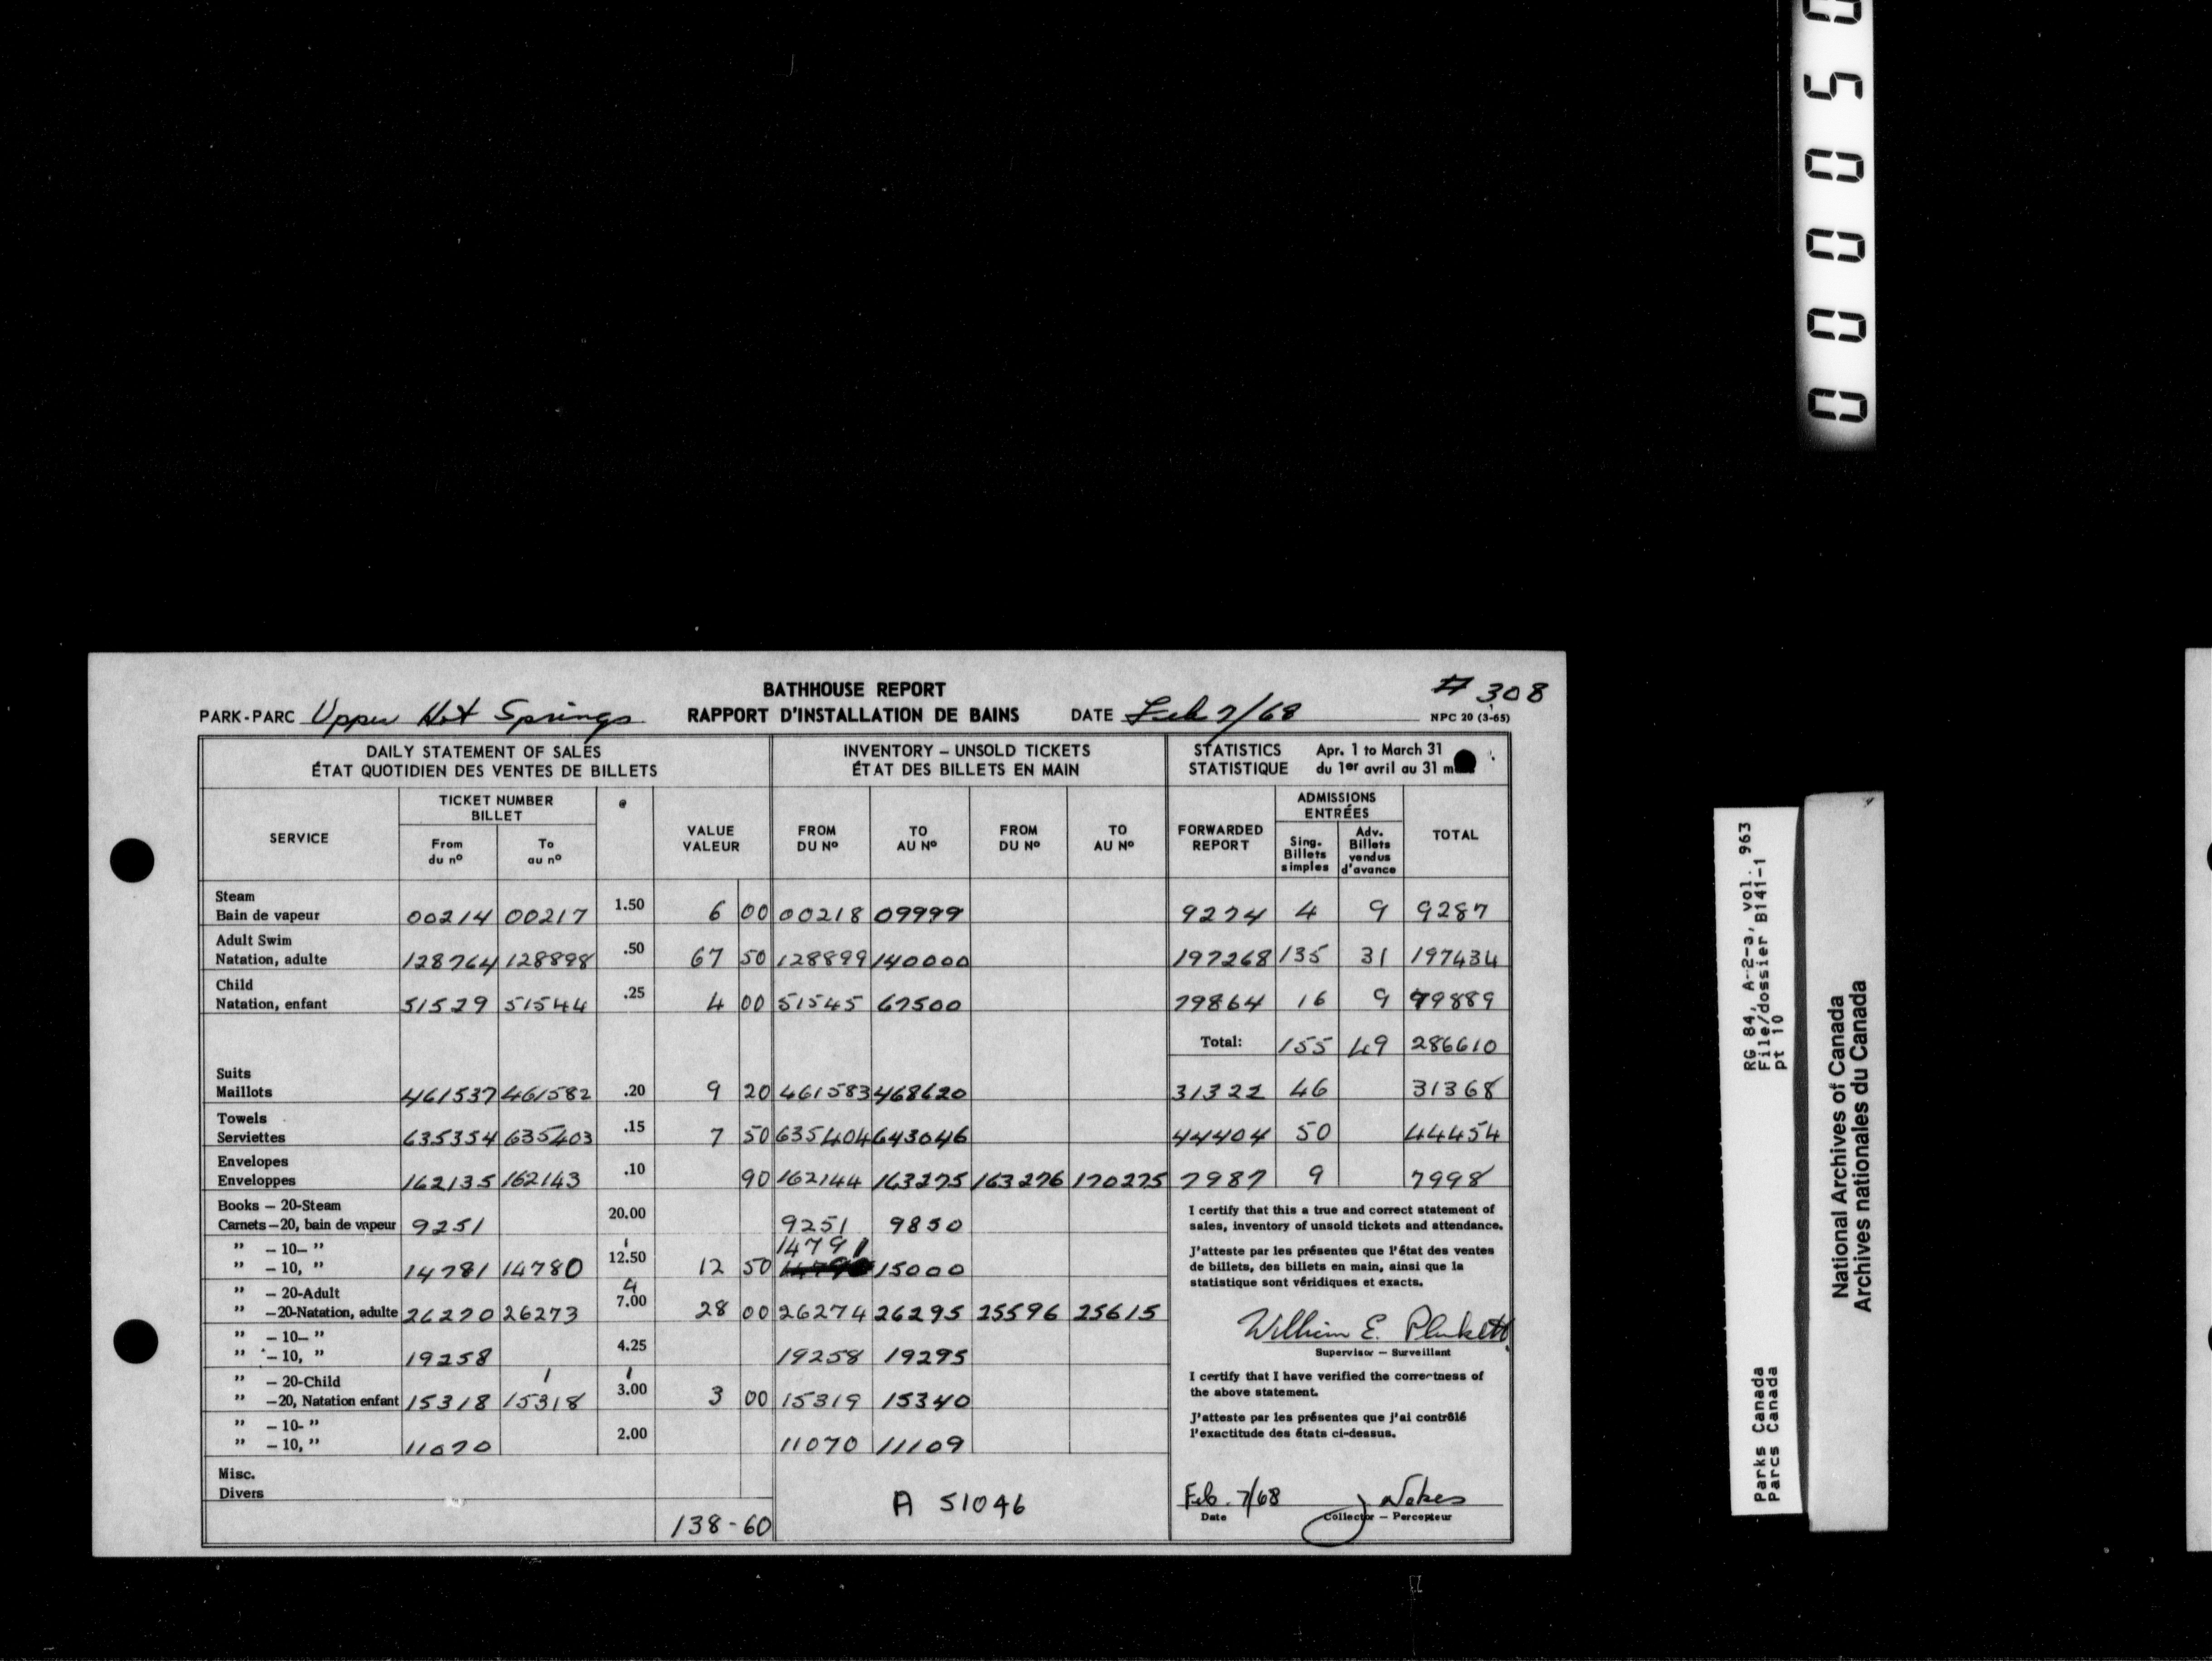 000050
# 308
BATHHOUSE REPORT
PARK-PARC Upper Hot Springs RAPPORT D'INSTALLATION DE BAINS DATE Feb 7/68 NPC 20 (3-65)
DAILY STATEMENT OF SALES INVENTORY – UNSOLD TICKETS STATISTICS Apr. 1 to March 31
ÉTAT QUOTIDIEN DES VENTES DE BILLETS ÉTAT DES BILLETS EN MAIN STATISTIQUE du 1er avril au 31
SERVICE
TICKET NUMBER
BILLET
From To
du nº au nº
@
VALUE
VALEUR
FROM TO FROM TO
DU Nº AU Nº DU Nº AU Nº
FORWARDED
REPORT
ADMISSIONS
ENTRÉES
Sing.
Billets
simples
Adv.
Billets
vendus
d'avance
TOTAL
Steam
Bain de vapeur 00214 00217 1.50 6 00 00218 09999 9274 4 9 9287
Adult Swim
Natation, adulte 128764 128898 .50 67 50 128899 140000 197268 135 31 197434
Child
Natation, enfant 51529 51544 .25 4 00 51545 67500 79864 16 9 79889
Total: 155 49 286610
Suits
Maillots 461537 461582 .20 9 20 461583 468620 31322 46 31368
Towels
Serviettes 635354 635403 .15 7 50 635404 643046 44404 50 44454
Envelopes
Enveloppes 162135 162143 .10 90 162144 163275 163276 170275 7987 9 7998
Books – 20-Steam
Carnets–20, bain de vapeur 9251 20.00 9251 9850
" – 10– " 1 14791
" – 10, " 14781 14780 12.50 12 50 15000
" – 20-Adult 4
" –20-Natation, adulte 26270 26273 7.00 28 00 26274 26295 25596 25615
" – 10– "
" – 10, " 19258 4.25 19258 19295
" – 20-Child 1 1
" –20, Natation enfant 15318 15318 3.00 3 00 15319 15340
" – 10- "
" – 10, " 11070 2.00 11070 11109
Misc.
Divers
138-60
A 51046
I certify that this a true and correct statement of
sales, inventory of unsold tickets and attendance.
J'atteste par les présentes que l'état des ventes
de billets, des billets en main, ainsi que la
statistique sont véridiques et exacts.
William E. Plunkett
Supervisor – Surveillant
I certify that I have verified the correctness of
the above statement.
J'atteste par les présentes que j'ai contrôlé
l'exactitude des états ci-dessus.
Feb. 7/68
Date Collector – Percepteur
RG 84, A-2-a, vol. 963
File/dossier B141-1
pt 10
Parks Canada
Parcs Canada
National Archives of Canada
Archives nationales du Canada